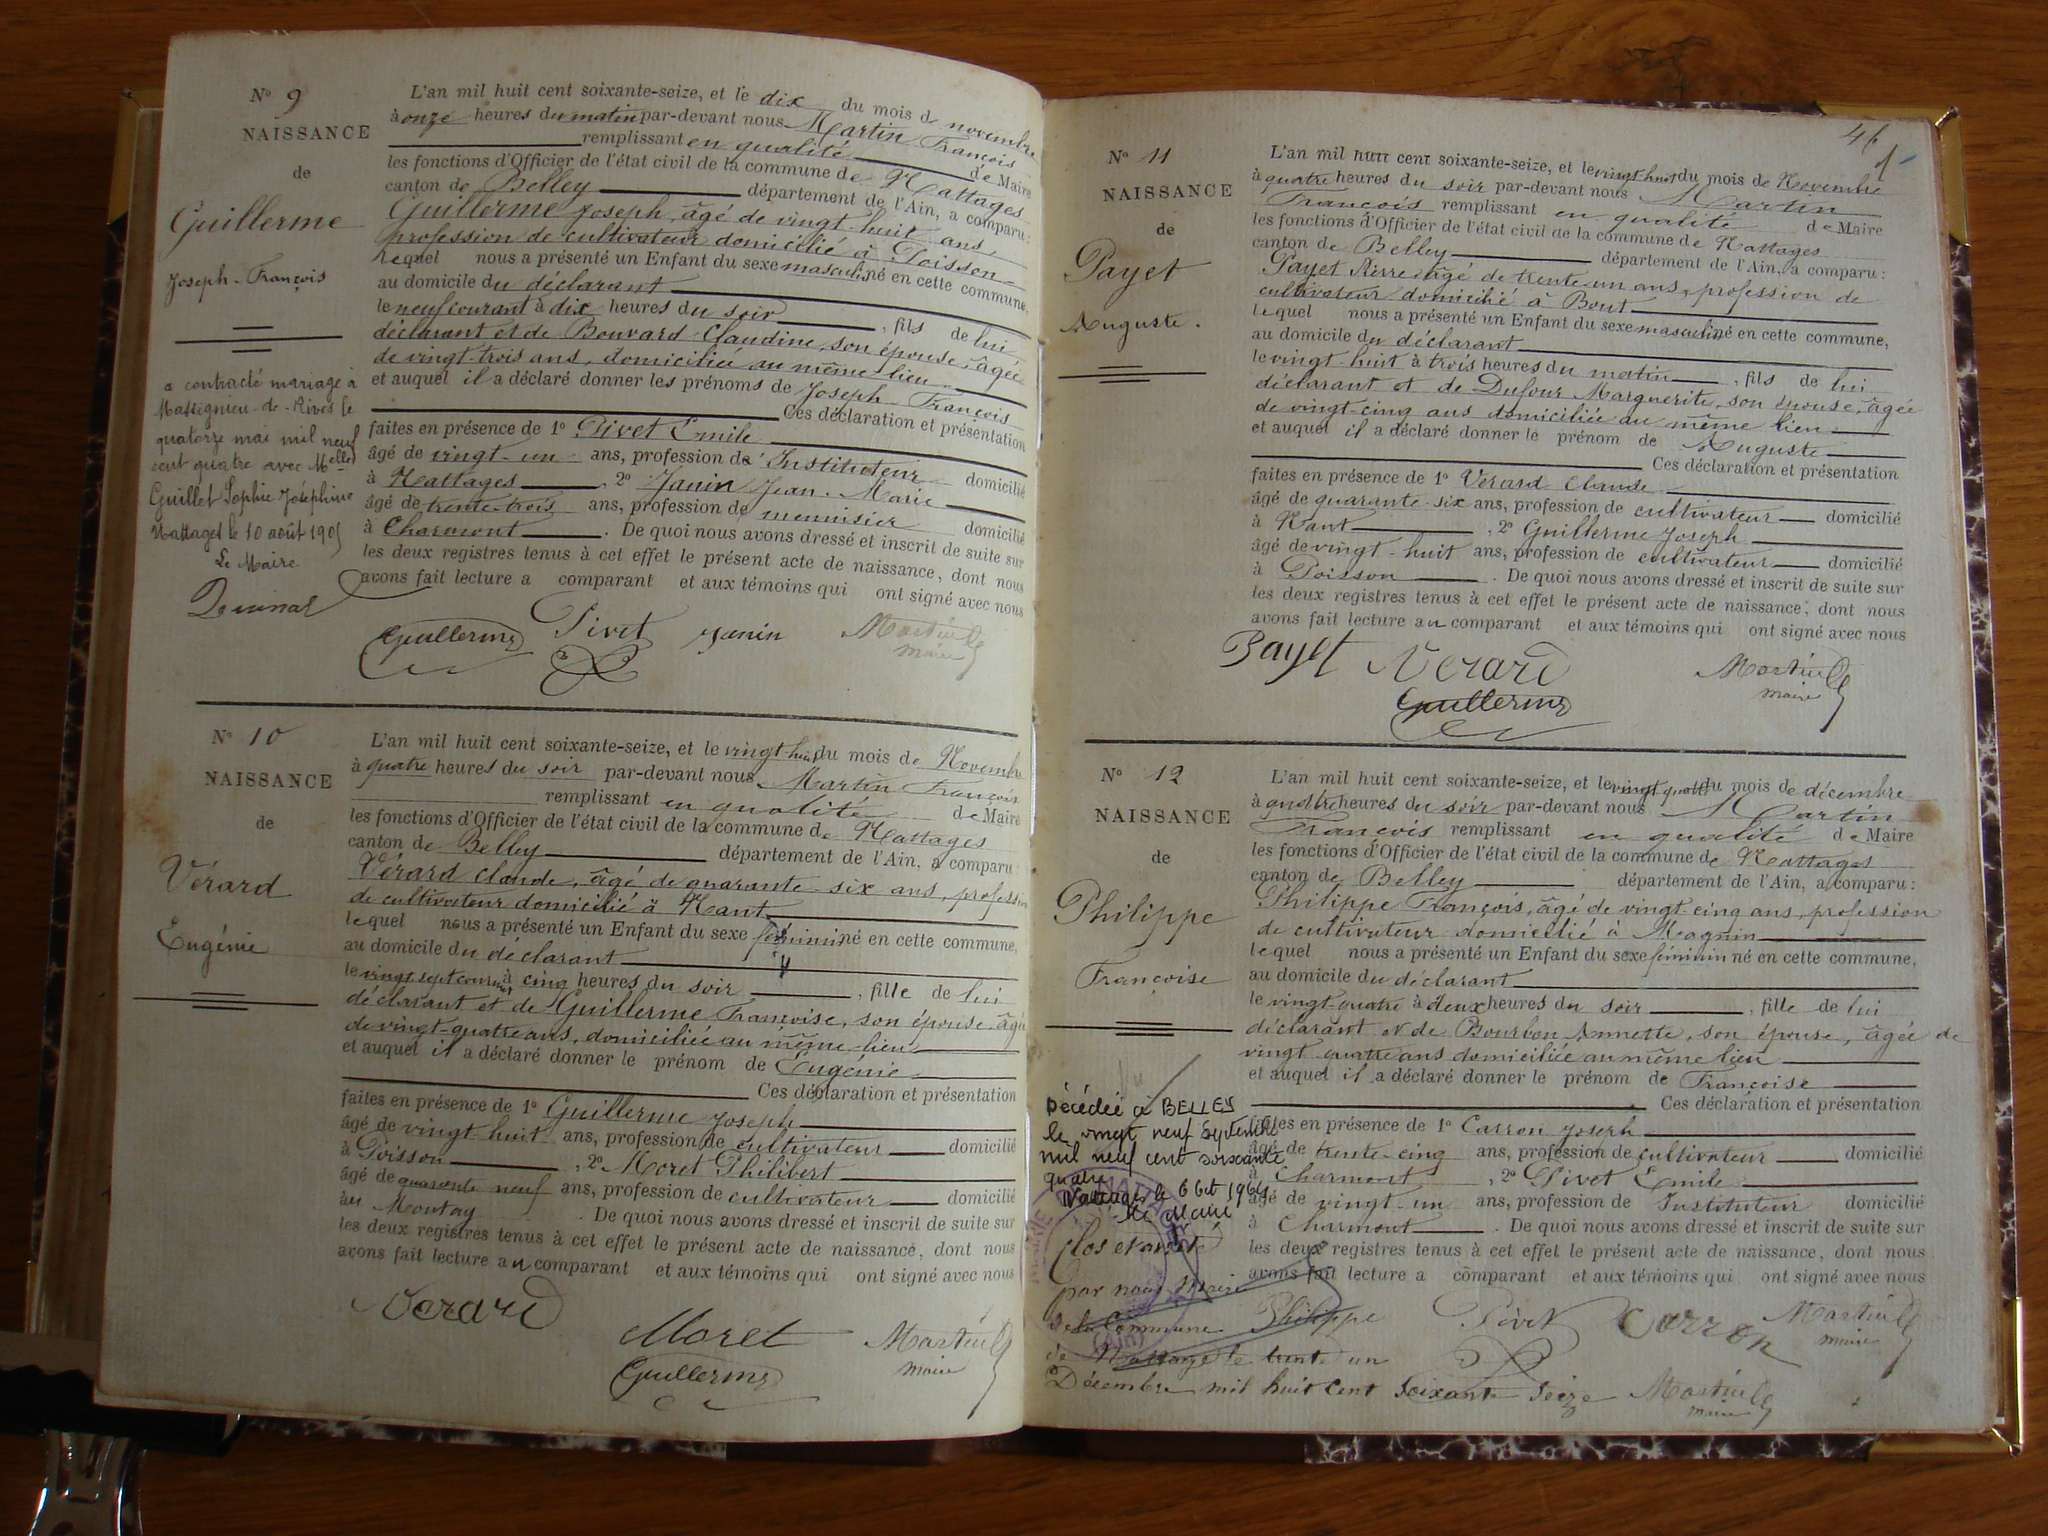 N° 9
NAISSANCE
de
Guillerme
Joseph-François
a contracté mariage à
Massignieu-de-Rives le
quatorze mai mil neuf
cent quatre avec Melle
Guillet Sophie Joséphine
Nattages le 10 août 1905
Le Maire
L'an mil huit cent soixante-seize, et le dix du mois de novembre
à onze heures du matin par-devant nous Martin François
remplissant en qualité de Maire
les fonctions d'Officier de l'état civil de la commune de Nattages
canton de Belley département de l'Ain, a comparu:
Guillerme Joseph, âgé de vingt-huit ans,
profession de cultivateur domicilié à Poisson
lequel nous a présenté un Enfant du sexe masculin né en cette commune,
au domicile du déclarant
le neuf courant à dix heures du soir, fils de lui
déclarant et de Bouvard Claudine, son épouse, âgée
de vingt-trois ans, domiciliée au même lieu
et auquel il a déclaré donner les prénoms de Joseph-François
Ces déclaration et présentation
faites en présence de 1° Pivet Emile
âgé de vingt-un ans, profession d'Instituteur domicilié
à Nattages, 2° Janin Jean-Marie
âgé de trente-trois ans, profession de menuisier domicilié
à Charmont. De quoi nous avons dressé et inscrit de suite sur
les deux registres tenus à cet effet le présent acte de naissance, dont nous
avons fait lecture a comparant et aux témoins qui ont signé avec nous
Guillerme Pivet Janin Martin
maire
N° 10
NAISSANCE
de
Vérard
Eugénie
L'an mil huit cent soixante-seize, et le vingt-huit du mois de Novembre
à quatre heures du soir par-devant nous Martin François
remplissant en qualité de Maire
les fonctions d'Officier de l'état civil de la commune de Nattages
canton de Belley département de l'Ain, a comparu:
Vérard Claude, âgé de quarante-six ans, profession
de cultivateur domicilié à Nant
lequel nous a présenté un Enfant du sexe féminin né en cette commune,
au domicile du déclarant
le vingt sept courant à cinq heures du soir, fille de lui
déclarant et de Guillerme Françoise, son épouse, âgée
de vingt-quatre ans, domiciliée au même lieu
et auquel il a déclaré donner le prénom de Eugénie
Ces déclaration et présentation
faites en présence de 1° Guillerme Joseph
âgé de vingt-huit ans, profession de cultivateur domicilié
à Poisson, 2° Moret Philibert
âgé de quarante neuf ans, profession de cultivateur domicilié
au Montay. De quoi nous avons dressé et inscrit de suite sur
les deux registres tenus à cet effet le présent acte de naissance, dont nous
avons fait lecture au comparant et aux témoins qui ont signé avec nous
Verard
Moret Martin
Guillerme maire
46
N° 11
NAISSANCE
de
Payet
Auguste.
L'an mil huit cent soixante-seize, et le vingt huit du mois de Novembre
à quatre heures du soir par-devant nous Martin
François remplissant en qualité de Maire
les fonctions d'Officier de l'état civil de la commune de Nattages
canton de Belley département de l'Ain, a comparu:
Payet Pierre âgé de trente-un ans, profession de
cultivateur domicilié à Bout
lequel nous a présenté un Enfant du sexe masculin né en cette commune,
au domicile du déclarant
le vingt-huit à trois heures du matin, fils de lui
déclarant et de Dufour Marguerite, son épouse, âgée
de vingt-cinq ans domiciliée au même lieu
et auquel il a déclaré donner le prénom de Auguste
Ces déclaration et présentation
faites en présence de 1° Vérard Claude
âgé de quarante-six ans, profession de cultivateur domicilié
à Nant, 2° Guillerme Joseph
âgé de vingt-huit ans, profession de cultivateur domicilié
à Poisson. De quoi nous avons dressé et inscrit de suite sur
les deux registres tenus à cet effet le présent acte de naissance, dont nous
avons fait lecture au comparant et aux témoins qui ont signé avec nous
Payet Verard Martin
Guillerme maire
N° 12
NAISSANCE
de
Philippe
Françoise
Décédée à BELLEY
le vingt neuf Septembre
mil neuf cent soixante
quatre
Nattages le 6 Oct 1964
Le Maire
L'an mil huit cent soixante-seize, et le vingt quatre du mois de décembre
à quatre heures du soir par-devant nous Martin
François remplissant en qualité de Maire
les fonctions d'Officier de l'état civil de la commune de Nattages
canton de Belley département de l'Ain, a comparu:
Philippe François, âgé de vingt-cinq ans, profession
de cultivateur domicilié à Magnin
lequel nous a présenté un Enfant du sexe féminin né en cette commune,
au domicile du déclarant
le vingt-quatre à deux heures du soir, fille de lui
déclarant et de Bourbon Annette, son épouse, âgée de
vingt-quatre ans domiciliée au même lieu
et auquel il a déclaré donner le prénom de Françoise
Ces déclaration et présentation
faites en présence de 1° Carron Joseph
âgé de trente-cinq ans, profession de cultivateur domicilié
à Charmont, 2° Pivet Émile
âgé de vingt-un ans, profession de Instituteur domicilié
à Charmont. De quoi nous avons dressé et inscrit de suite sur
les deux registres tenus à cet effet le présent acte de naissance, dont nous
avons fait lecture a comparant et aux témoins qui ont signé avec nous
Philippe Pivet Carron Martin
maire
Clos et arrêté
par nous Maire
de la Commune
de Nattages le trente un
Décembre mil huit cent soixante seize Martin
maire